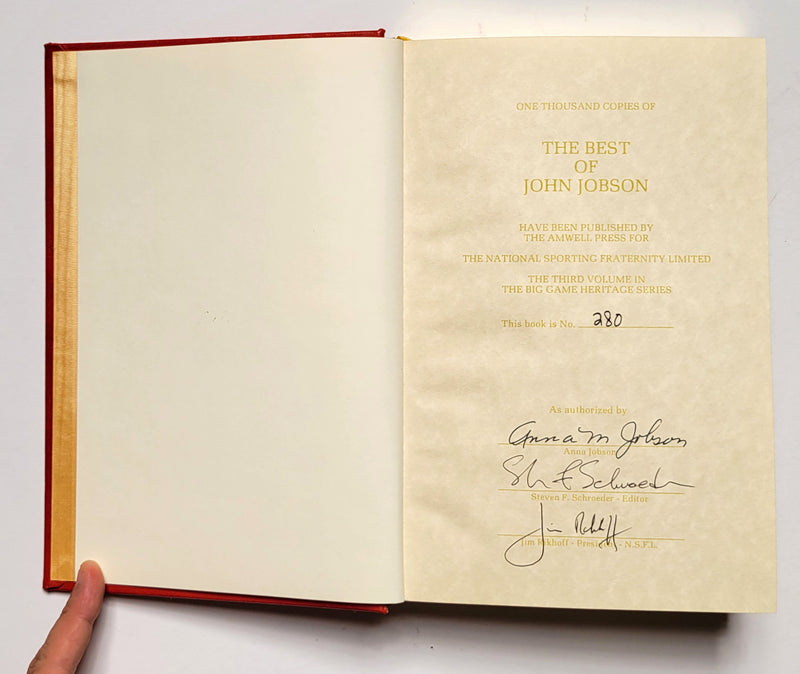 ONE THOUSAND COPIES OF
THE BEST
OF
JOHN JOBSON
HAVE BEEN PUBLISHED BY
THE AMWELL PRESS FOR
THE NATIONAL SPORTING FRATERNITY LIMITED
THE THIRD VOLUME IN
THE BIG GAME HERITAGE SERIES
This book is No. 280
As authorized by
Anna M Jobson
Anna Jobson
Steven F Schroeder
Steven F. Schroeder - Editor
Jim Rikhoff
Jim Rikhoff - President - N.S.F.L.